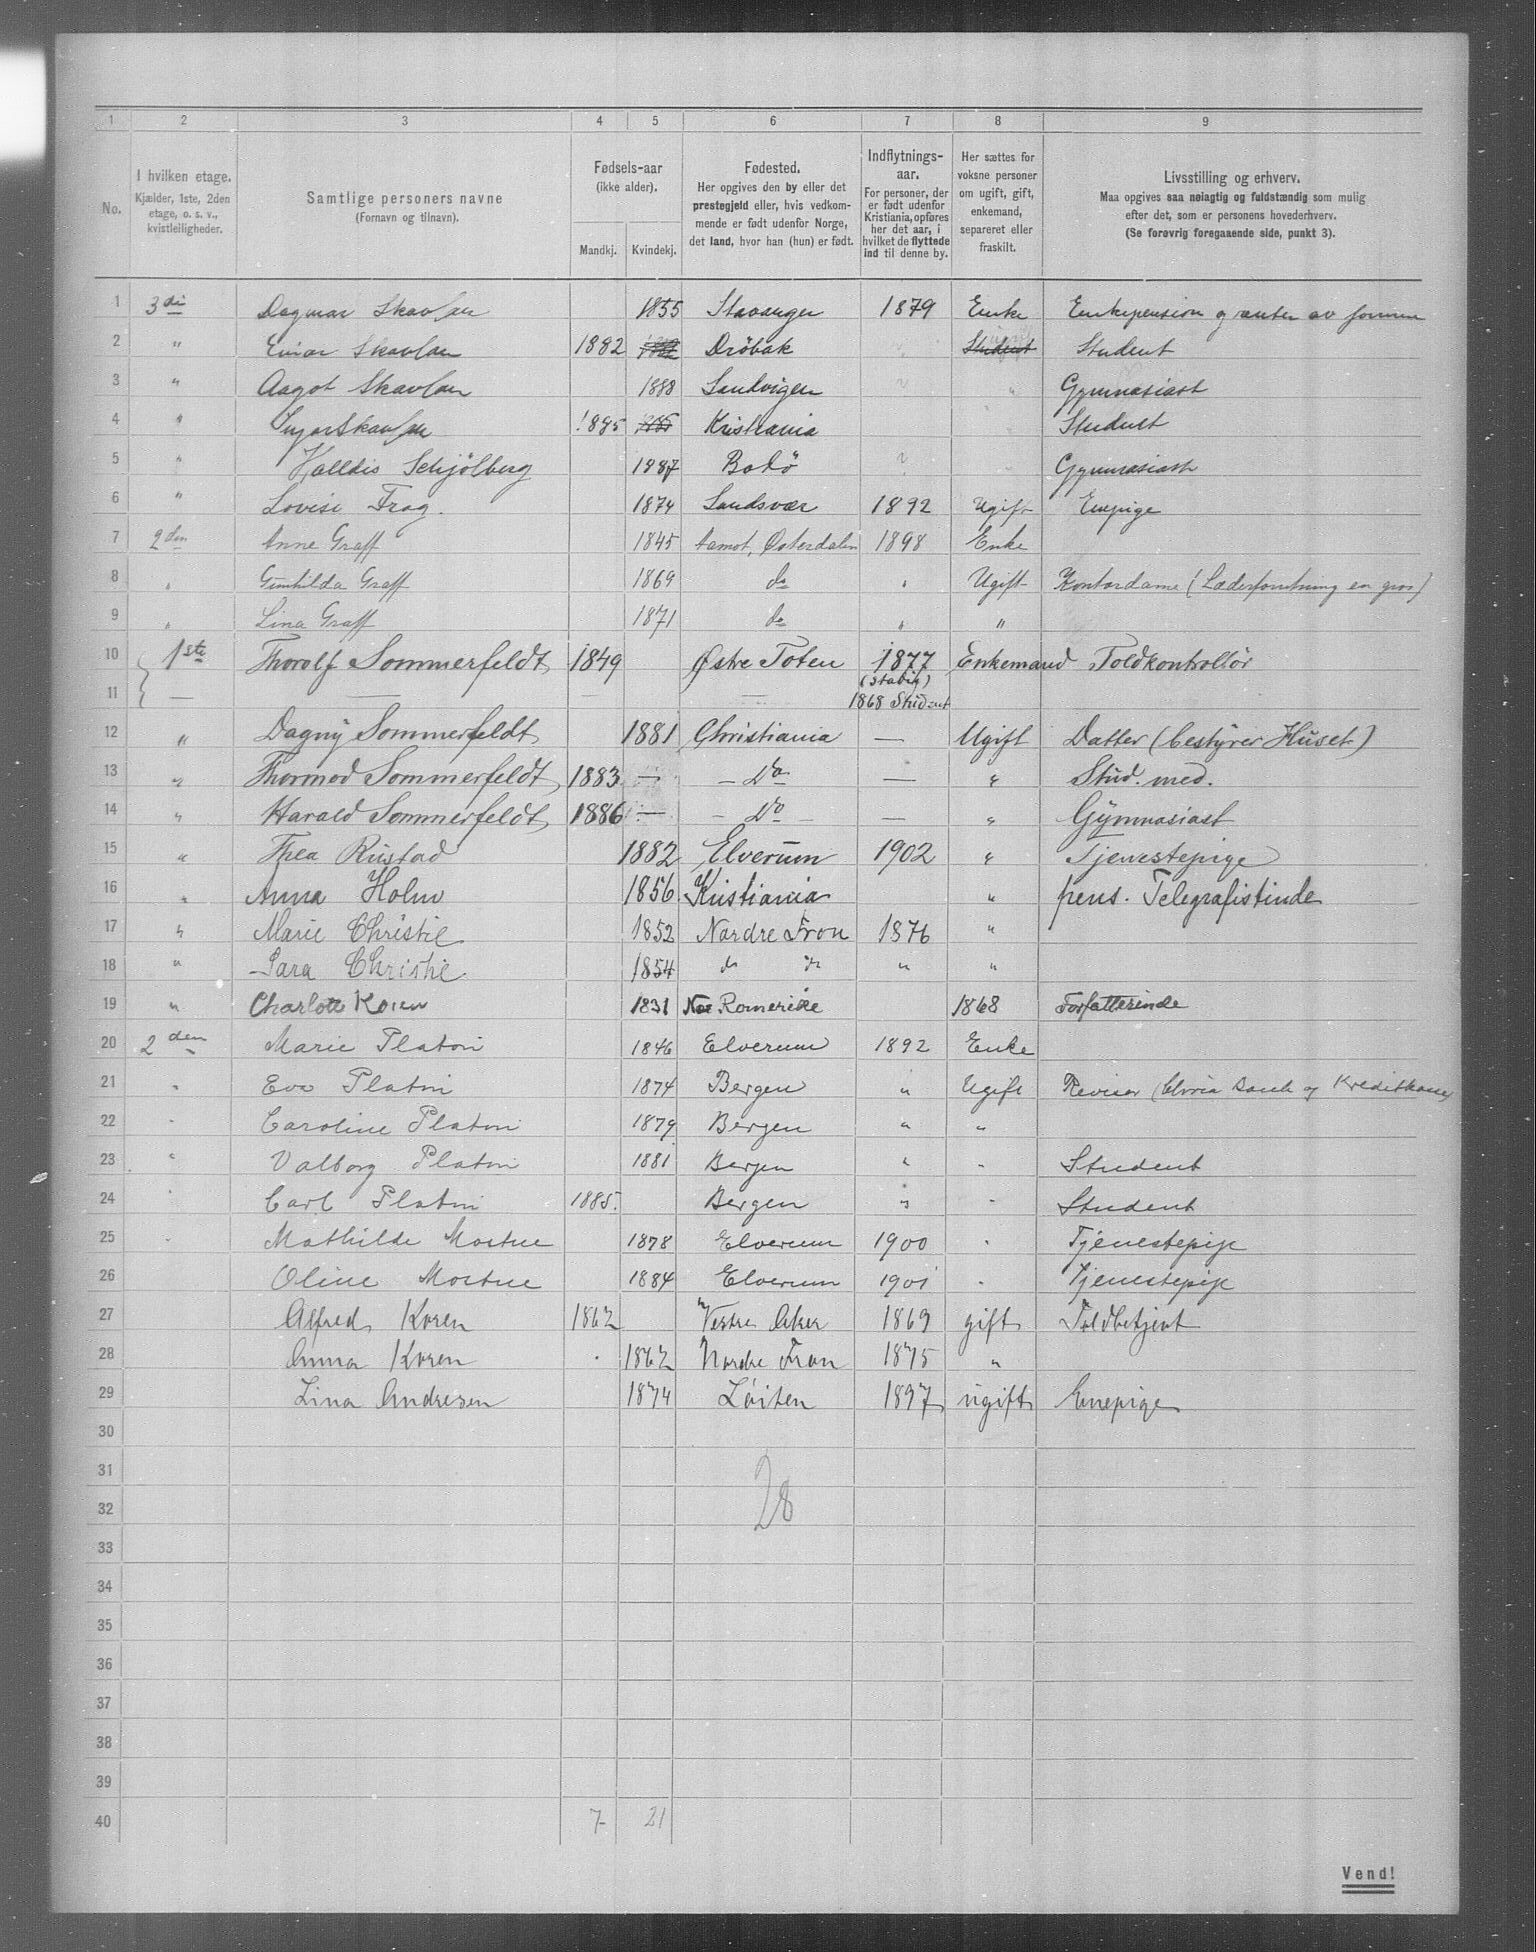 1 2 3 4 5 6 7 8 9
No.
I hvilken etage.
Kjælder, 1ste, 2den
etage, o. s. v.,
kvistleiligheder.
Samtlige personers navne
(Fornavn og tilnavn).
Fødsels-aar
(ikke alder).
Mandkj. Kvindekj.
Fødested.
Her opgives den by eller det
prestegjeld eller, hvis vedkom-
mende er født udenfor Norge,
det land, hvor han (hun) er født.
Indflytnings-
aar.
For personer, der
er født udenfor
Kristiania, opføres
her det aar, i
hvilket de flyttede
ind til denne by.
Her sættes for
voksne personer
om ugift, gift,
enkemand,
separeret eller
fraskilt.
Livsstilling og erhverv.
Maa opgives saa nøiagtig og fuldstændig som mulig
efter det, som er personens hovederhverv.
(Se forøvrig foregaaende side, punkt 3).
1 3die Dagmar Skavlan 1855 Stavanger 1879 Enke Enkepension og renter av formue
2 " Einar Skavlan 1882 Drøbak Student Student
3 " Aagot Skavlan 1888 Sandvigen " Gymnasiast
4 " Skavlan 1885 1885 Kristiania Student
5 " Halldis Schjølberg 1887 Bodø Gymnasiast
6 " Lovise Frog. 1874 Sandsvær 1892 Ugift Enepige
7 2den Anne Graff 1845 Aamot, Østerdalen 1898 Enke
8 " Gunhilda Graff 1869 do " Ugift Kontordame (Læderforretning en gros)
9 " Lina Graff 1871 do " "
10 1ste Thorolf Sommerfeldt 1849 Østre Toten 1877 Enkemand Toldkontrollør
11 — — — — (stadig)
1868 Student
12 " Dagny Sommerfeldt 1881 Christiania — Ugift Datter (bestyrer Huset)
13 " Thormod Sommerfeldt 1883 — — Do — " Stud. med.
14 " Harald Sommerfeldt 1886 — – Do – — " Gymnasiast
15 " Thea Rustad 1882 Elverum 1902 " Tjenestepige
16 " Anna Holm 1856 Kristiania " pens. Telegrafistinde
17 " Marie Christie 1852 Nordre Fron 1876 "
18 " Sara Christie 1854 do do " "
19 " Charlotte Koren 1831 Romerike 1868 Forfatterinde
20 2den Marie Platou 1846 Elverum 1892 Enke
21 " Eva Platou 1874 Bergen " Ugift Revisor Bank og Kreditkasse
22 " Caroline Platou 1879 Bergen " "
23 " Valborg Platou 1881 Bergen " " Student
24 " Carl Platou 1885. Bergen " " Student
25 " Mathilde Mostue 1878 Elverum 1900 " Tjenestepige
26 Oline Mostue 1884 Elverum 1901 " Tjenestepige
27 Alfred Koren 1862 Vestre Aker 1869 gift Toldbetjent
28 Anna Koren 1862 Nordre Fron 1875 "
29 Lina Andresen 1874 Løiten 1897 ugift Enepige
30
31
32
28
33
34
35
36
37
38
39
40 7 21
Vend!